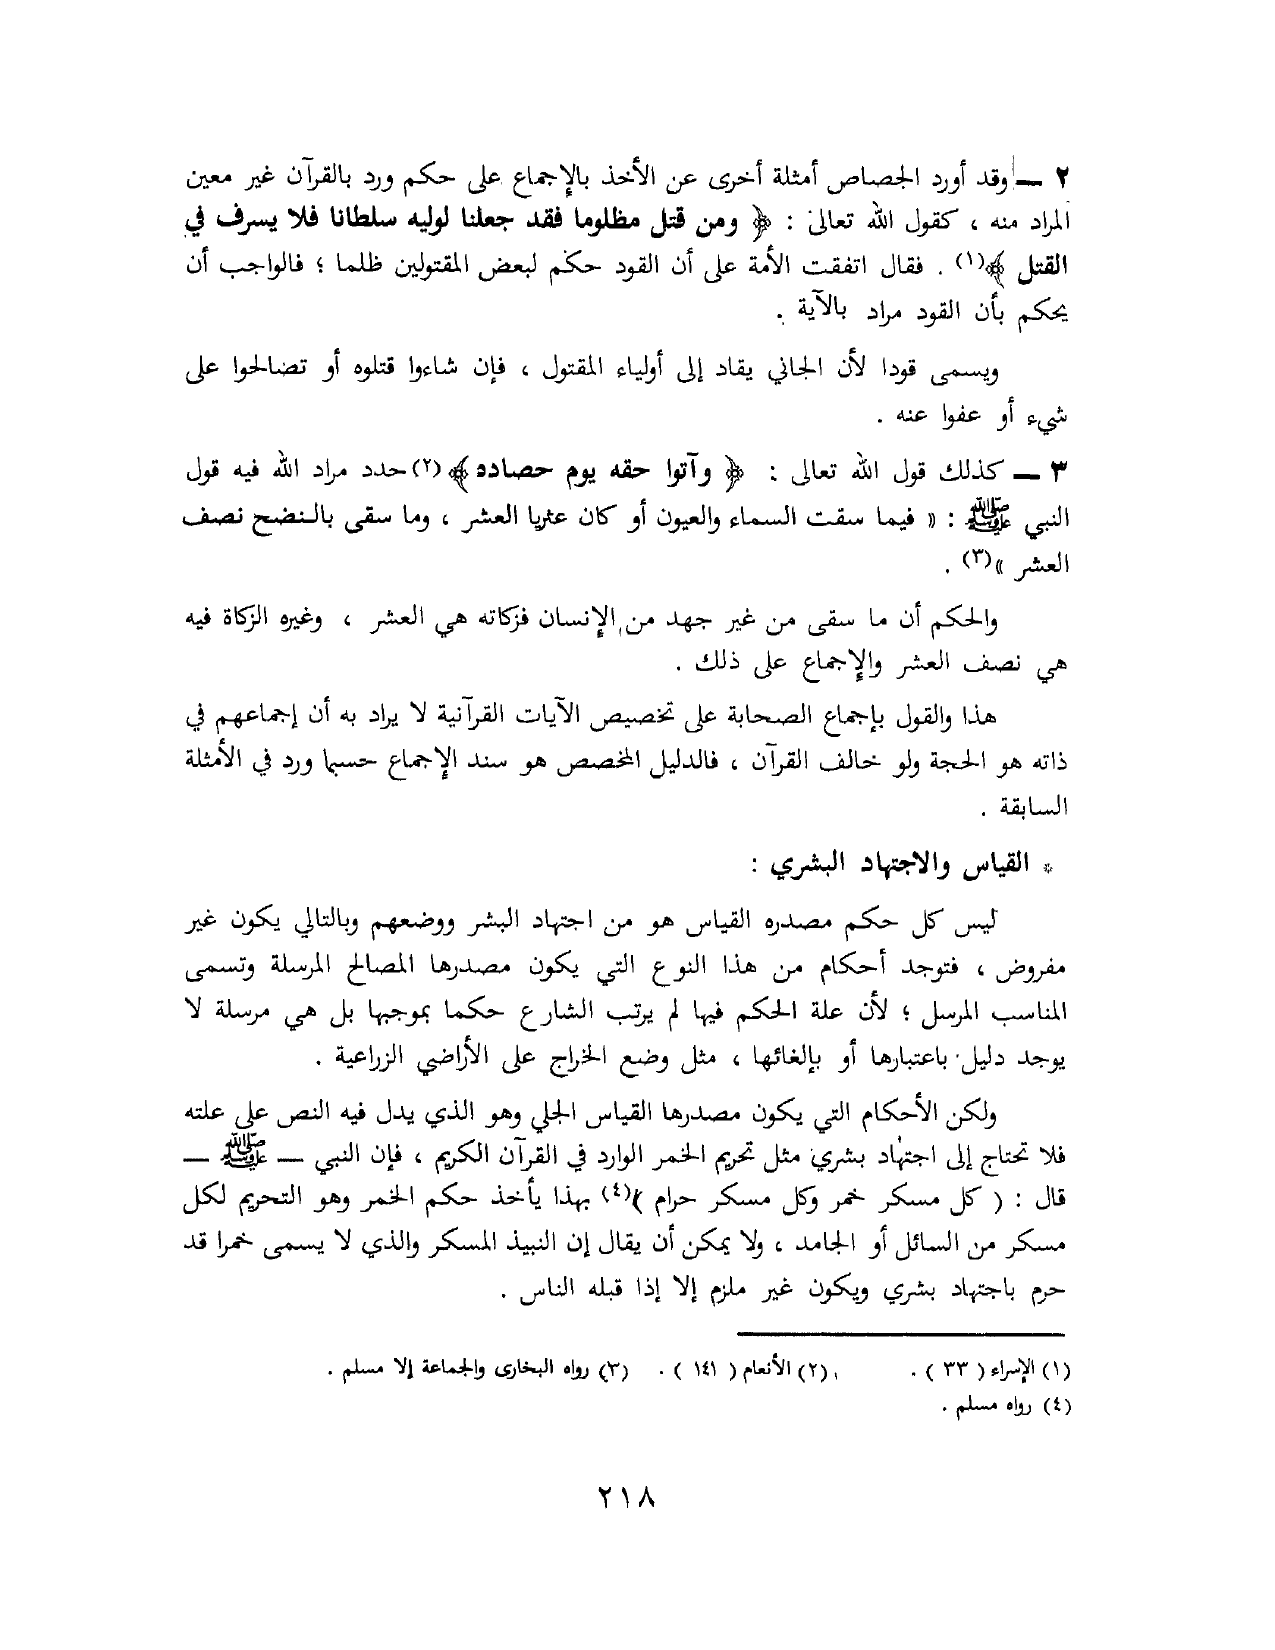 ٢ ــ وقد أورد الجصاص أمثلة أخرى عن الأخذ بالإجماع على حكم ورد بالقرآن غير معين
المراد منه ، كقول الله تعالى : ﴿ ومن قتل مظلوما فقد جعلنا لوليه سلطانا فلا يسرف في
القتل ﴾(١) . فقال اتفقت الأمة على أن القود حكم لبعض المقتولين ظلما ؛ فالواجب أن
يحكم بأن القود مراد بالآية .
ويسمى قودا لأن الجاني يقاد إلى أولياء المقتول ، فإن شاءوا قتلوه أو تصالحوا على
شيء أو عفوا عنه .
٣ ــ كذلك قول الله تعالى : ﴿ وآتوا حقه يوم حصاده ﴾(٢) حدد مراد الله فيه قول
النبي ﷺ : « فيما سقت السماء والعيون أو كان عثريا العشر ، وما سقى بالنضح نصف
العشر »(٣) .
والحكم أن ما سقى من غير جهد من الإنسان فزكاته هي العشر ، وغيره الزكاة فيه
هي نصف العشر والإجماع على ذلك .
هذا والقول بإجماع الصحابة على تخصيص الآيات القرآنية لا يراد به أن إجماعهم في
ذاته هو الحجة ولو خالف القرآن ، فالدليل المخصص هو سند الإجماع حسبما ورد في الأمثلة
السابقة .
* القياس والاجتهاد البشري :
ليس كل حكم مصدره القياس هو من اجتهاد البشر ووضعهم وبالتالي يكون غير
مفروض ، فتوجد أحكام من هذا النوع التي يكون مصدرها المصالح المرسلة وتسمى
المناسب المرسل ؛ لأن علة الحكم فيها لم يرتب الشارع حكما بموجبها بل هي مرسلة لا
يوجد دليل باعتبارها أو بإلغائها ، مثل وضع الخراج على الأراضي الزراعية .
ولكن الأحكام التي يكون مصدرها القياس الجلي وهو الذي يدل فيه النص على علته
فلا تحتاج إلى اجتهاد بشري مثل تحريم الخمر الوارد في القرآن الكريم ، فإن النبي ــ ﷺ ــ
قال : ( كل مسكر خمر وكل مسكر حرام )(٤) بهذا يأخذ حكم الخمر وهو التحريم لكل
مسكر من السائل أو الجامد ، ولا يمكن أن يقال إن النبيذ المسكر والذي لا يسمى خمرا قد
حرم باجتهاد بشري ويكون غير ملزم إلا إذا قبله الناس .
(١) الإسراء ( ٣٣ ) . (٢) الأنعام ( ١٤١ ) . (٣) رواه البخارى والجماعة إلا مسلم .
(٤) رواه مسلم .
٢١٨